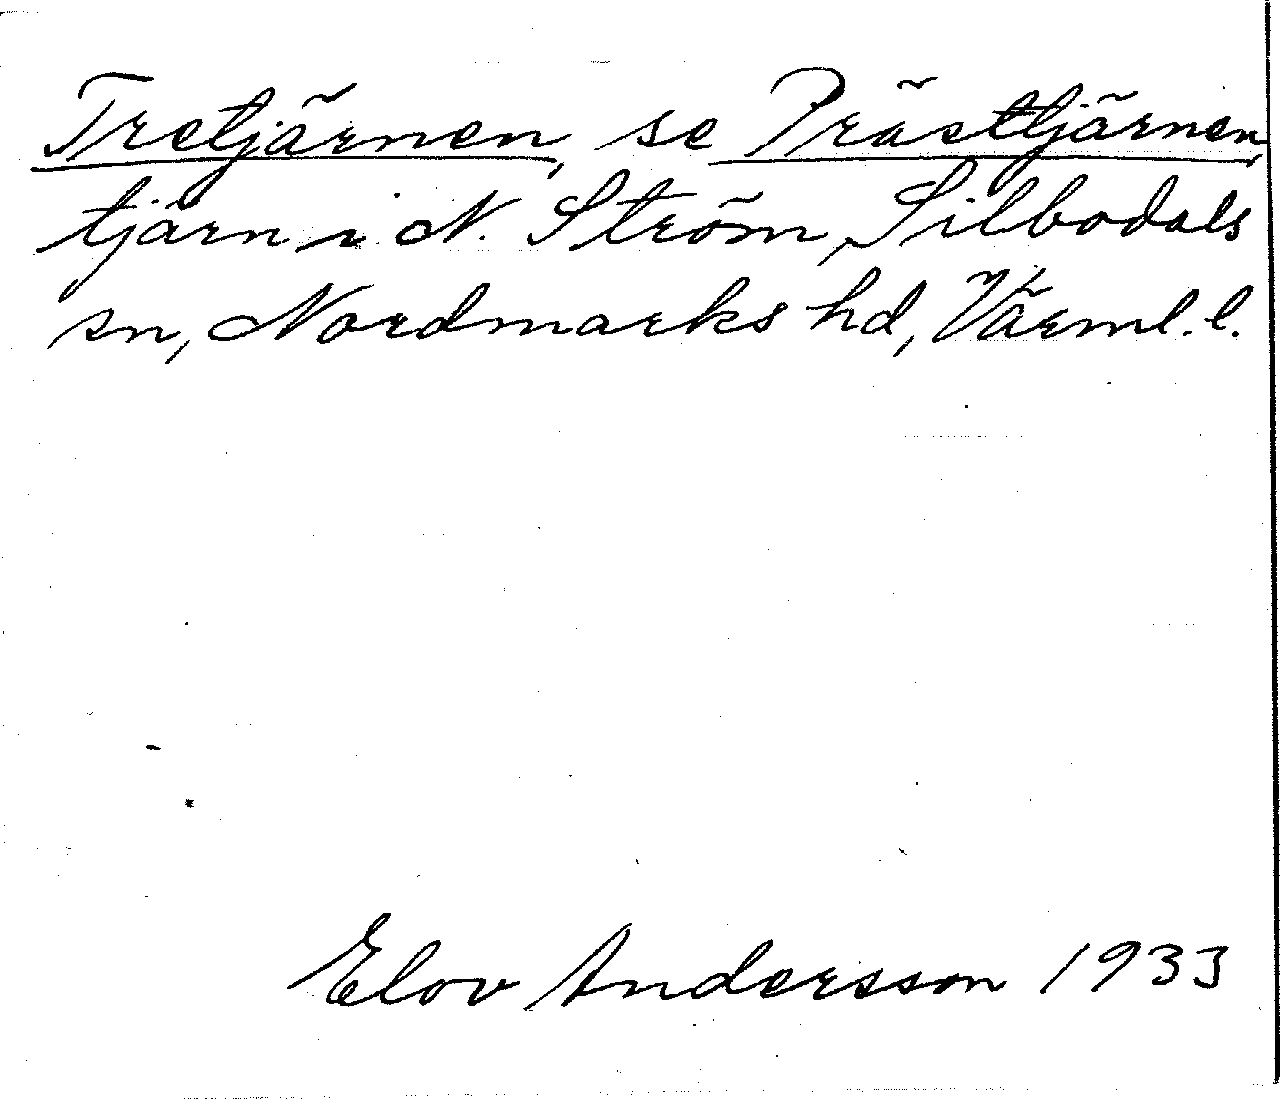 Tretjärnen, se Prästtjärnen,
tjärn i N. Ström, Silbodals
sn, Nordmarks hd, Värml. l.
Elov Andersson 1933